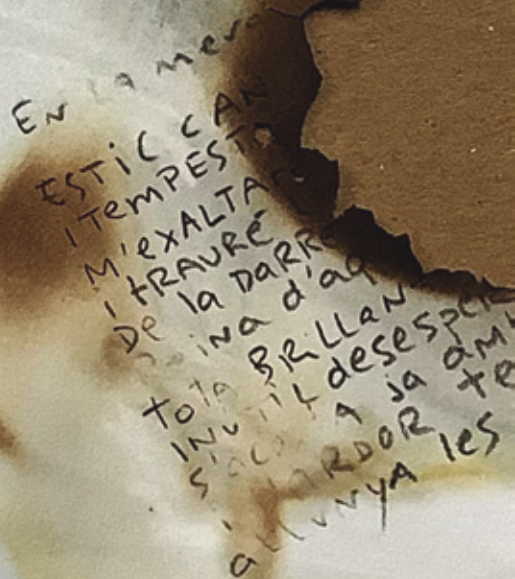 En la meva
ESTIC CAN
I TEMPESTA
M'EXALTA
I TRAURÉ
DE la DARR
ina d'aq
tota BRillan
INUTIL desespER
s'acosta ja AMB
ARDOR te
allunya les